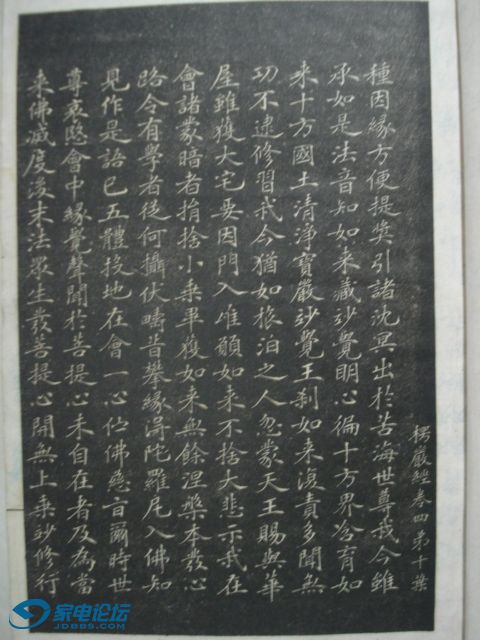 種因緣方便提獎引諸沈冥出於苦海世尊我今雖
承如是法音知如来藏妙覺明心徧十方界含育如
来十方國土清淨寶嚴妙覺王刹如来復責多聞無
功不逮修習我今猶如旅泊之人忽蒙天王賜與華
屋雖獲大宅要因門入唯願如来不捨大悲示我在
會諸蒙暗者捐捨小乗畢獲如来無餘涅槃本發心
路令有學者從何攝伏疇昔攀緣得陀羅尼入佛知
見作是語已五體投地在會一心佇佛慈旨爾時世
尊哀愍會中緣覺聲聞於菩提心未自在者及為當
来佛滅度後末法眾生發菩提心開無上乗妙修行
楞嚴經卷四第十葉
家电论坛
JDBBS.COM